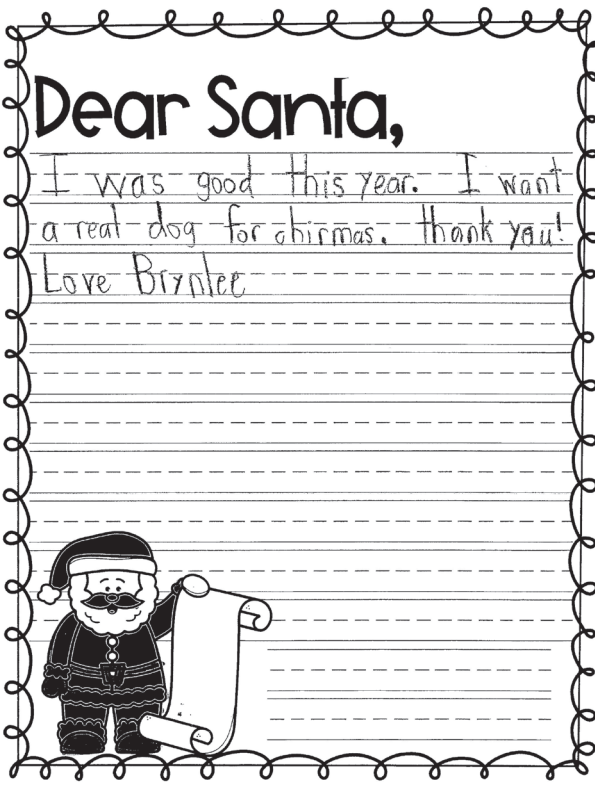 Dear Santa,
I was good this year. I want
a real dog for chirmas. thank you!
Love Brynlee